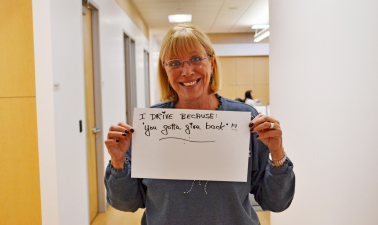 I DRIVE BECAUSE:
"you gotta give back" !!!